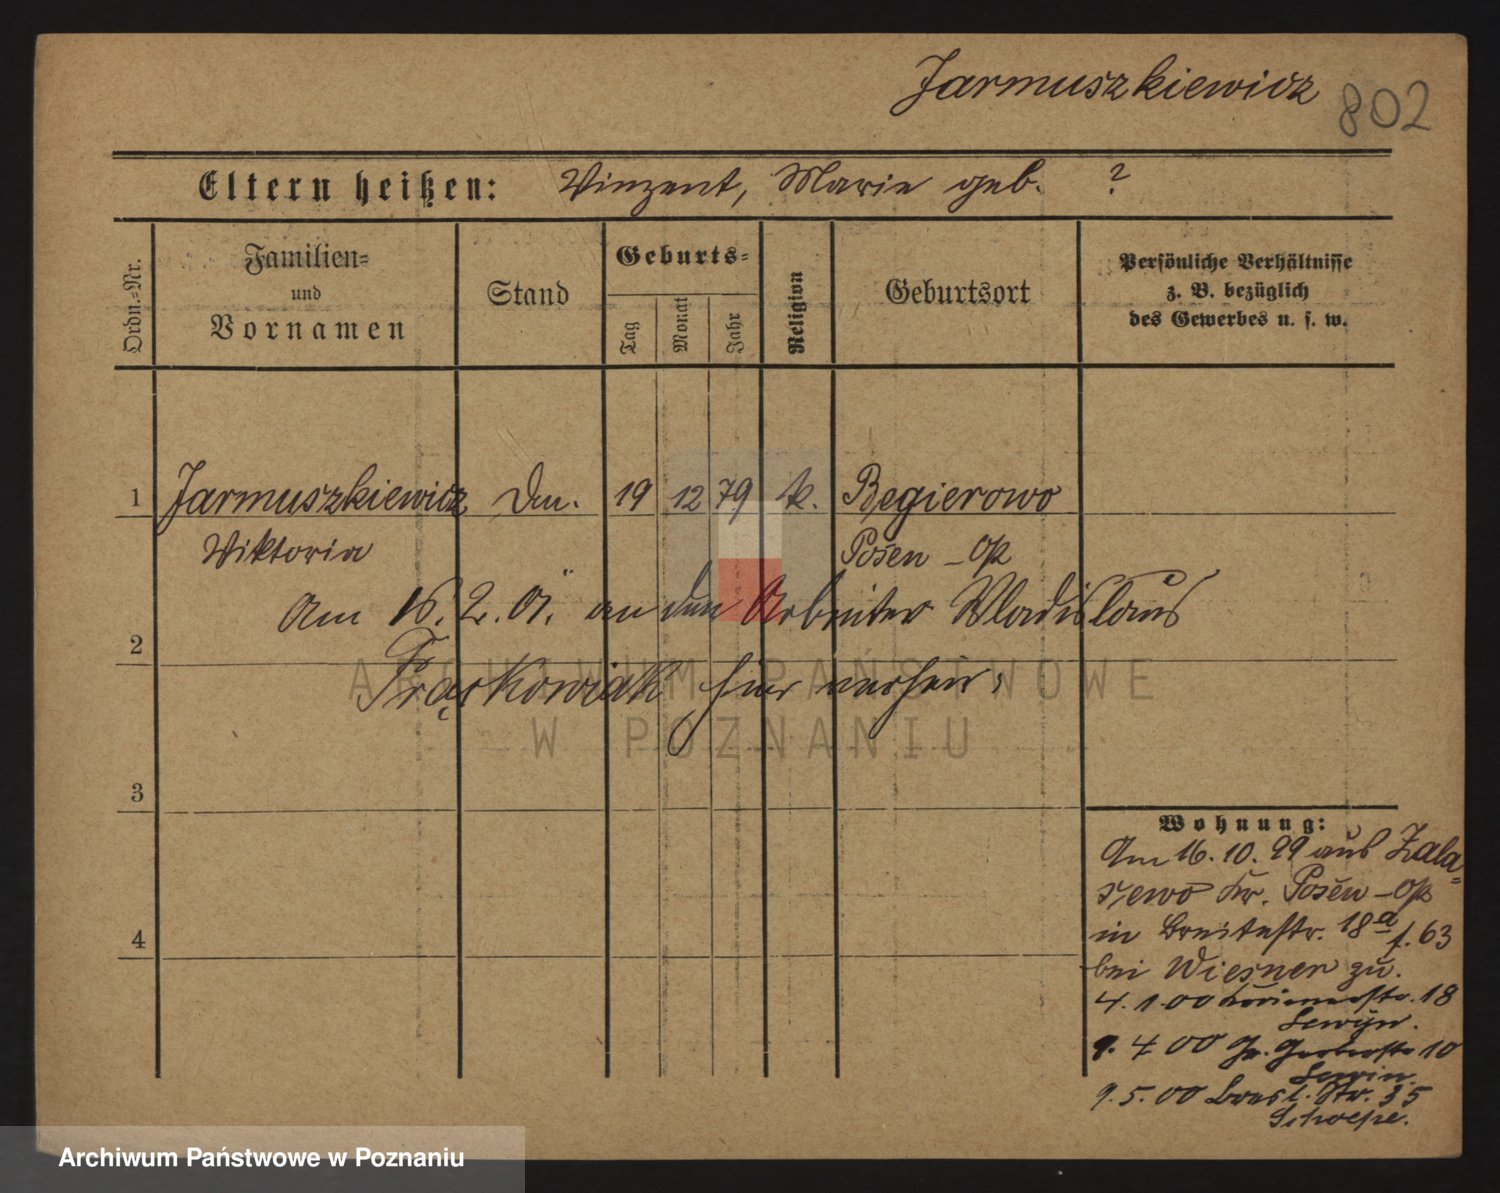 Jarmuszkiewicz 802
Eltern heißen: Vinzent, Marie geb. ?
Ordn.=Nr.
Familien=
und
Vornamen
Stand
Geburts=
Tag
Monat
Jahr
Religion
Geburtsort
Persönliche Verhältnisse
z. B. bezüglich
des Gewerbes u. s. w.
1 Jarmuszkiewicz 19 12 79 k. Regierowo
Viktoria Posen - Op
Am 16.2.01. an den Arbeiter Wladislaus
2
Frąckowiak hier verheir.
ARCHIWUM PAŃSTWOWE
W POZNANIU
3
4
Wohnung:
Am 16.10.99 aus Zala=
sewo Kr. Posen - Op
in Breitestr. 18a f. 63
bei Wiesner zu.
4. 1. 00 18
Lewin.
9. 4 00 Gr. Gerberstr 10
Lewin.
9. 5. 00 Bresl. Str. 35
Schoepe.
Archiwum Państwowe w Poznaniu